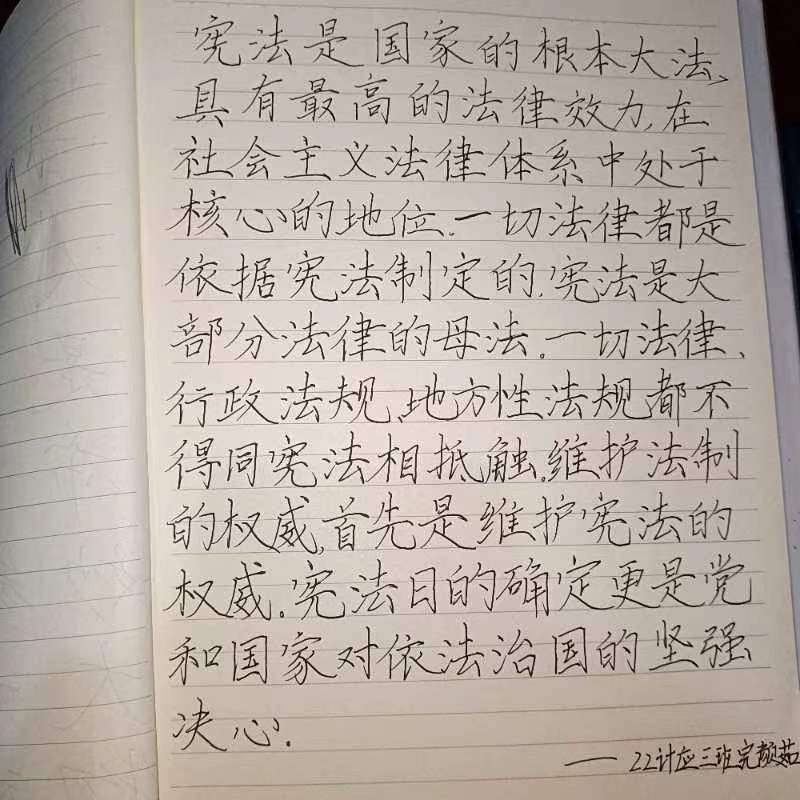 宪法是国家的根本大法、
具有最高的法律效力,在
社会主义法律体系中处于
核心的地位.一切法律都是
依据宪法制定的.宪法是大
部分法律的母法.一切法律、
行政法规、地方性法规都不
得同宪法相抵触.维护法制
的权威,首先是维护宪法的
权威.宪法日的确定更是党
和国家对依法治国的坚强
决心.
——22计应三班完颜茹